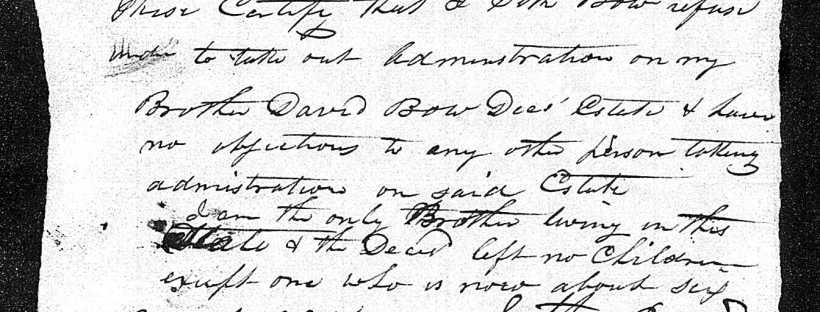 These Certify that I Seth Bow refuse
to take out Adminstration on my
Brother David Bow Decd Estate & have
no objections to any other person taking
admistration on said Estate
I am the only Brother living in this
State & the Decd left no Children
exept one who is now about six